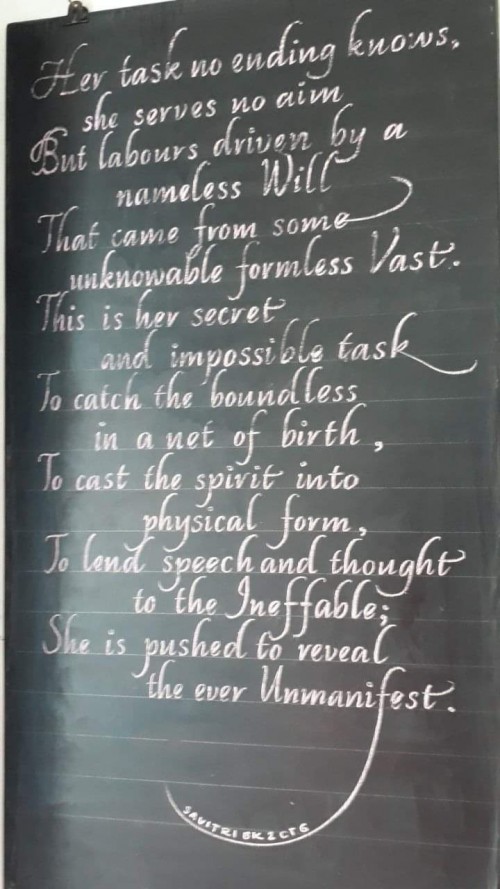 Her task no ending knows,
she serves no aim
But labours driven by a
nameless Will
That came from some
unknowable formless Vast.
This is her secret
and impossible task
To catch the boundless
in a net of birth,
To cast the spirit into
physical form,
To lend speech and thought
to the Ineffable;
She is pushed to reveal
the ever Unmanifest.
SAVITRI BK 2 CT 6